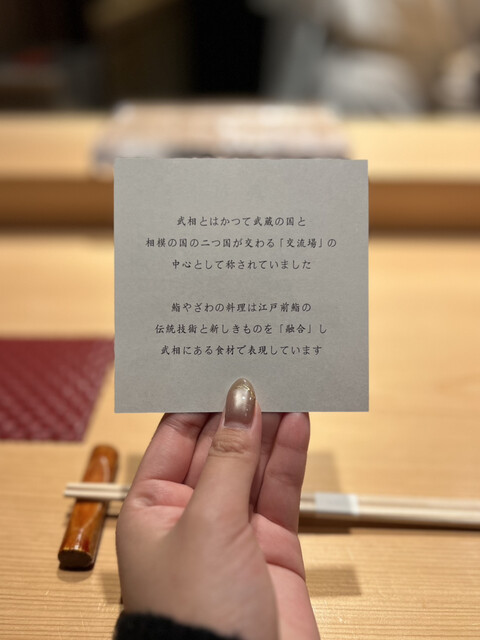 武相とはかつて武蔵の国と
相模の国の二つ国が交わる「交流場」の
中心として称されていました
鮨やざわの料理は江戸前鮨の
伝統技術と新しきものを「融合」し
武相にある食材で表現しています